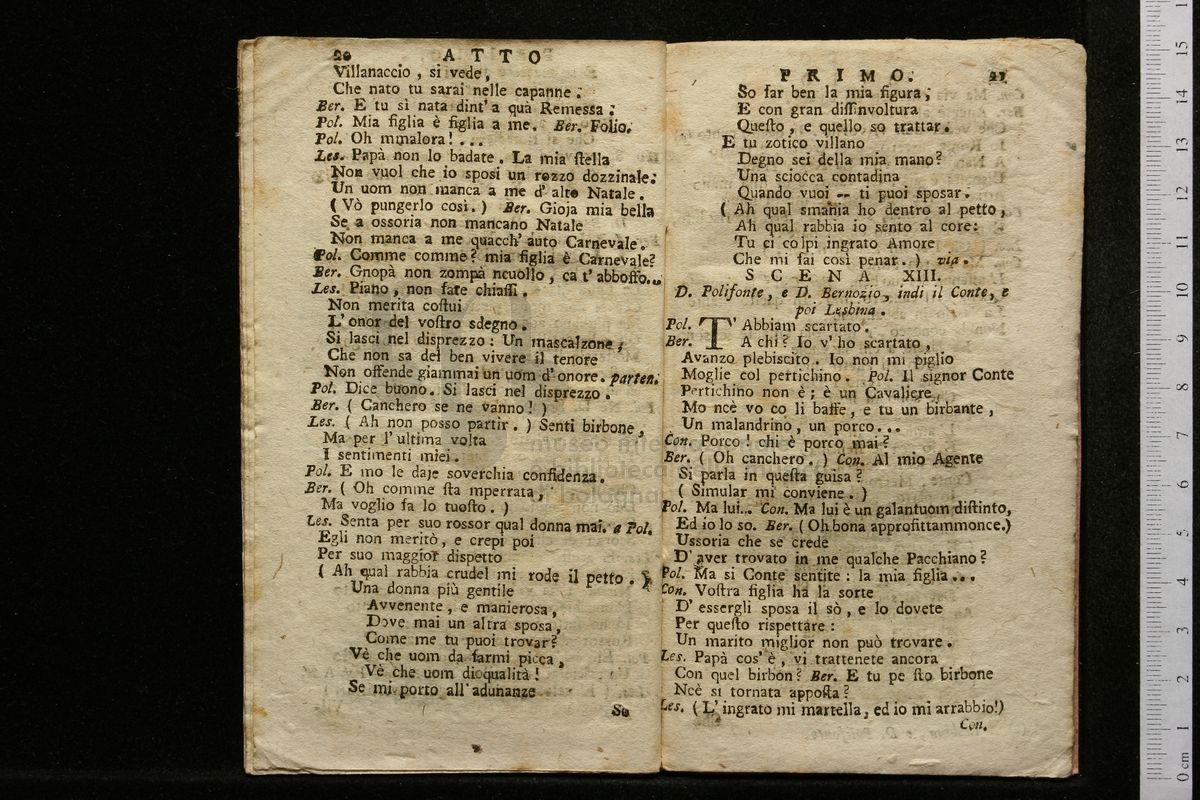 20 ATTO
Villanaccio, si vede,
Che nato tu sarai nelle capanne.
Ber. E tu si nata dint' a quà Remessa:
Pol. Mia figlia è figlia a me. Ber. Folio.
Pol. Oh mmalora!...
Les. Papà non lo badate. La mia ſtella
Non vuol che io sposi un rozzo dozzinale:
Un uom non manca a me d' alto Natale.
(Vò pungerlo così.) Ber. Gioja mia bella
Se a ossoria non mancano Natale
Non manca a me quacch' auto Carnevale.
Pol. Comme comme? mia figlia è Carnevale?
Ber. Gnopà non zompà ncuollo, ca t' abboffo...
Les. Piano, non fate chiaſſi.
Non merita coſtui
L' onor del voſtro sdegno.
Si lasci nel disprezzo: Un mascalzone,
Che non sa del ben vivere il tenore
Non offende giammai un uom d' onore. parten.
Pol. Dice buono. Si lasci nel disprezzo.
Ber. (Canchero se ne vanno!)
Les. (Ah non posso partir.) Senti birbone,
Ma per l' ultima volta
I sentimenti miei.
Pol. E mo le daje soverchia confidenza.
Ber. (Oh comme ſta mperrata,
Ma voglio fa lo tuoſto.)
Les. Senta per suo rossor qual donna mai. a Pol.
Egli non meritò, e crepi poi
Per suo maggior dispetto
(Ah qual rabbia crudel mi rode il petto.)
Una donna più gentile
Avvenente, e manierosa,
Dove mai un altra sposa,
Come me tu puoi trovar?
Vè che uom da farmi picca,
Vè che uom dioqualità!
Se mi porto all' adunanze
So
PRIMO. 21
So far ben la mia figura;
E con gran diſſinvoltura
Queſto, e quello so trattar.
E tu zotico villano
Degno sei della mia mano?
Una sciocca contadina
Quando vuoi -- ti puoi sposar.
(Ah qual smania ho dentro al petto,
Ah qual rabbia io sento al core:
Tu ci colpi ingrato Amore
Che mi fai così penar.) via.
SCENA XIII.
D. Polifonte, e D. Bernozio, indi il Conte, e
poi Lesbina.
Pol. T' Abbiam scartato.
Ber. A chi? Io v' ho scartato,
Avanzo plebiscito. Io non mi piglio
Moglie col pertichino. Pol. Il signor Conte
Pertichino non è; è un Cavaliere,
Mo ncè vo co li baffe, e tu un birbante,
Un malandrino, un porco...
Con. Porco! chi è porco mai?
Ber. (Oh canchero.) Con. Al mio Agente
Si parla in queſta guisa?
(Simular mi conviene.)
Pol. Ma lui... Con. Ma lui è un galantuom diſtinto,
Ed io lo so. Ber. (Oh bona approfittammonce.)
Ussoria che se crede
D' aver trovato in me qualche Pacchiano?
Pol. Ma si Conte sentite: la mia figlia...
Con. Voſtra figlia ha la sorte
D' essergli sposa il sò, e lo dovete
Per queſto rispettare:
Un marito miglior non può trovare.
Les. Papà cos' è, vi trattenete ancora
Con quel birbon? Ber. E tu pe ſto birbone
Ncè si tornata appoſta?
Les. (L' ingrato mi martella, ed io mi arrabbio!)
Con.